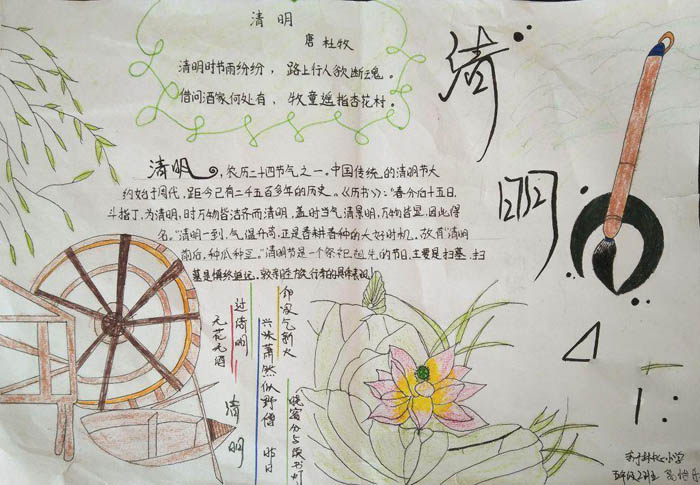 清明
唐 杜牧
清明时节雨纷纷，路上行人欲断魂。
借问酒家何处有，牧童遥指杏花村。
清
明
清明，农历二十四节气之一。中国传统的清明节大
约始于周代，距今已有二千五百多年的历史。《历书》："春分后十五日，
斗指丁，为清明，时万物皆洁齐而清明，盖时当气清景明，万物皆显，因此得
名。"清明一到，气温升高，正是春耕春种的大好时机，故有"清明
前后，种瓜种豆。"清明节是一个祭祀祖先的节日，主要是扫墓，扫
墓是慎终追远、敦亲睦族、行孝的具体表现！
清明
无花无酒
过清明
兴味萧然似野僧 昨日
邻家乞新火
晓窗分与读书灯
小学
五年级2班